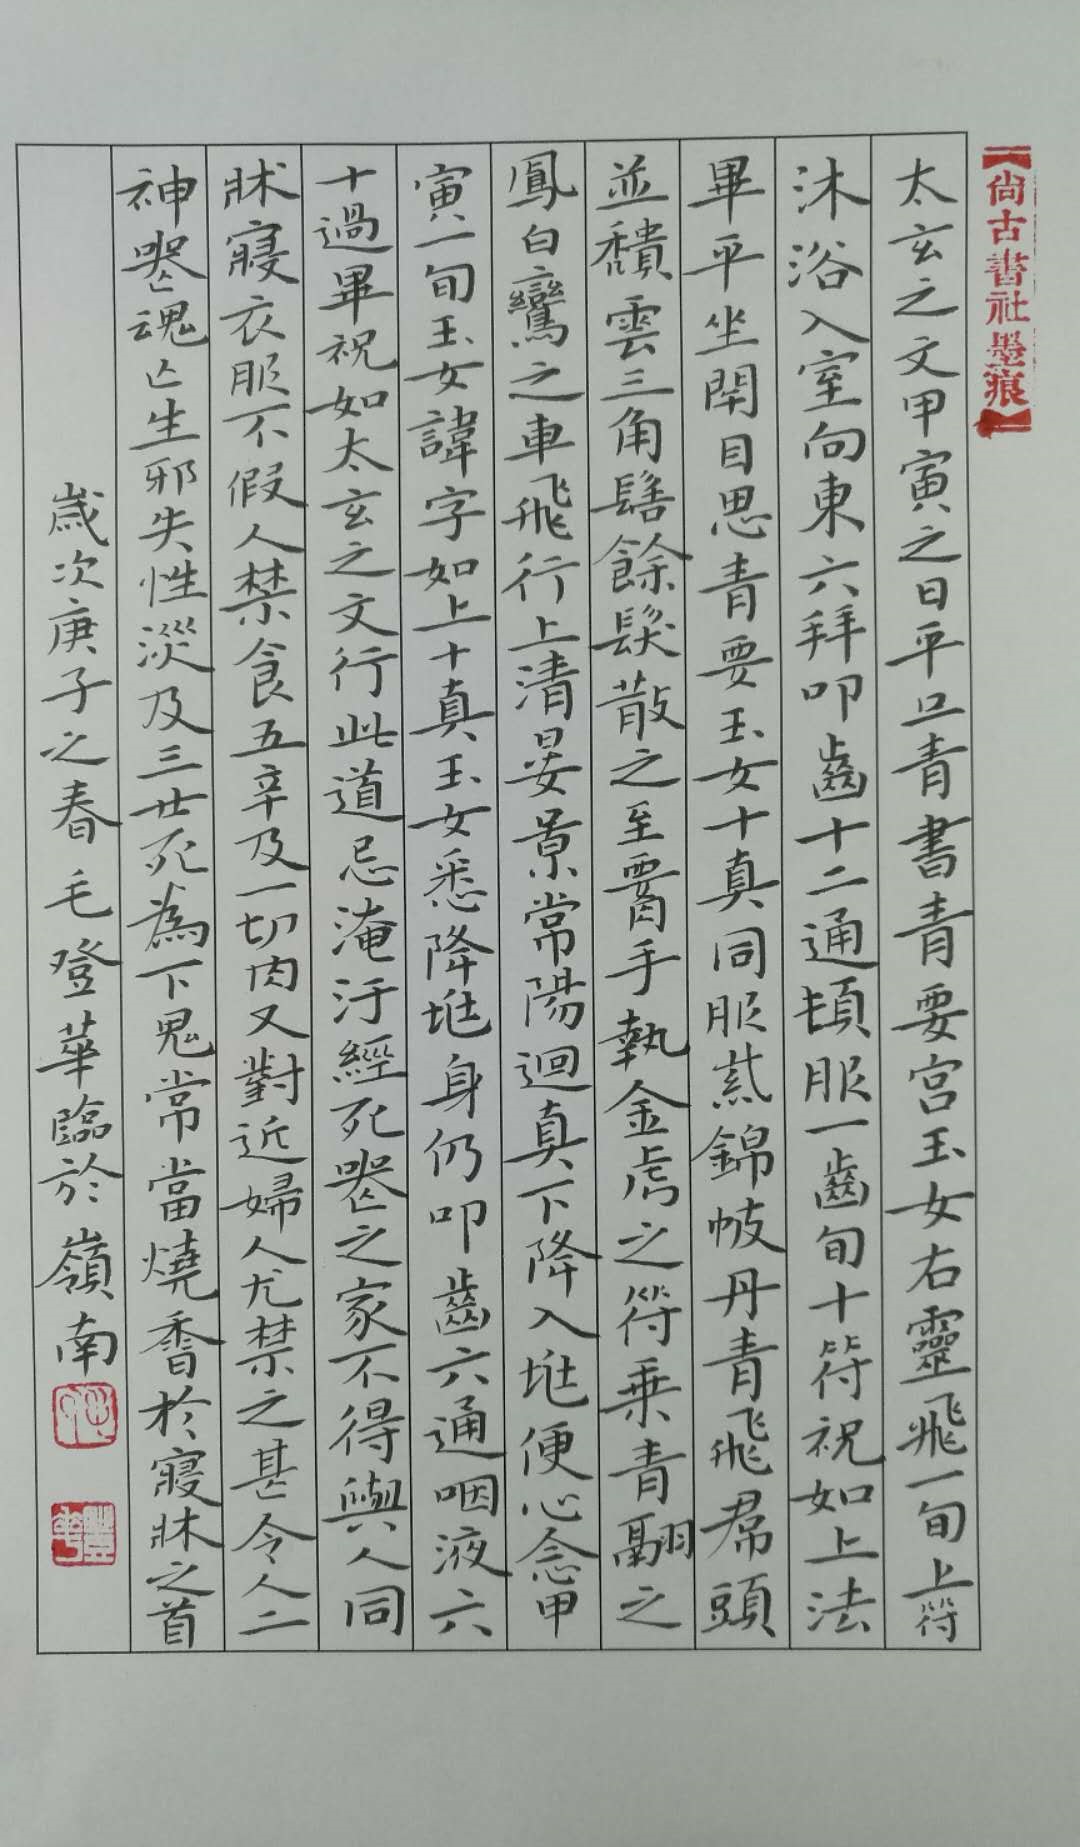 【尚古書社墨痕】
太玄之文甲寅之日平旦青書青要宮玉女右靈飛一旬上符
沐浴入室向東六拜叩齒十二通頓服一齒旬十符祝如上法
畢平坐閉目思青要玉女十真同服紫錦帔丹青飛帬頭
並穨雲三角髻餘髮散之至腰手執金虎之符乗青翮之
鳳白鸞之車飛行上清晏景常陽迴真下降入𡋯便心念甲
寅一旬玉女諱字如上十真玉女悉降𡋯身仍叩齒六通咽液六
十過畢祝如太玄之文行此道忌淹汙經死喪之家不得與人同
牀寢衣服不假人禁食五辛及一切肉又對近婦人尤禁之甚令人
神喪魂亡生邪失性災及三世死為下鬼常當燒香於寢牀之首
歲次庚子之春毛登華臨於嶺南